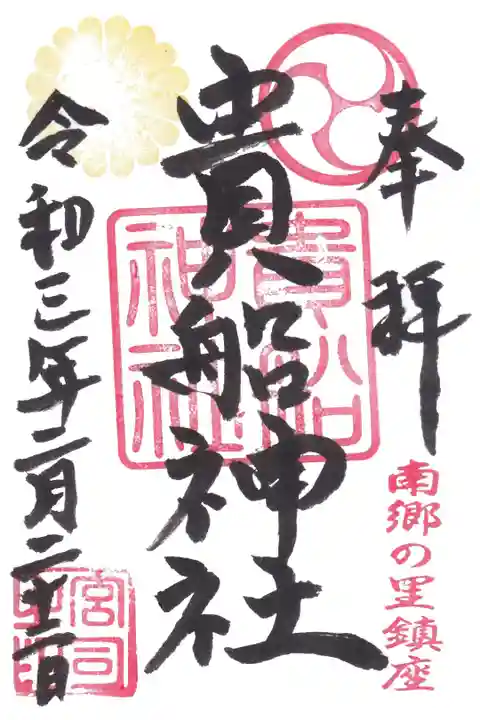 奉拝
南郷の里鎮座
貴船神社
貴船
神社
令和三年二月二十二日
宮司
之印